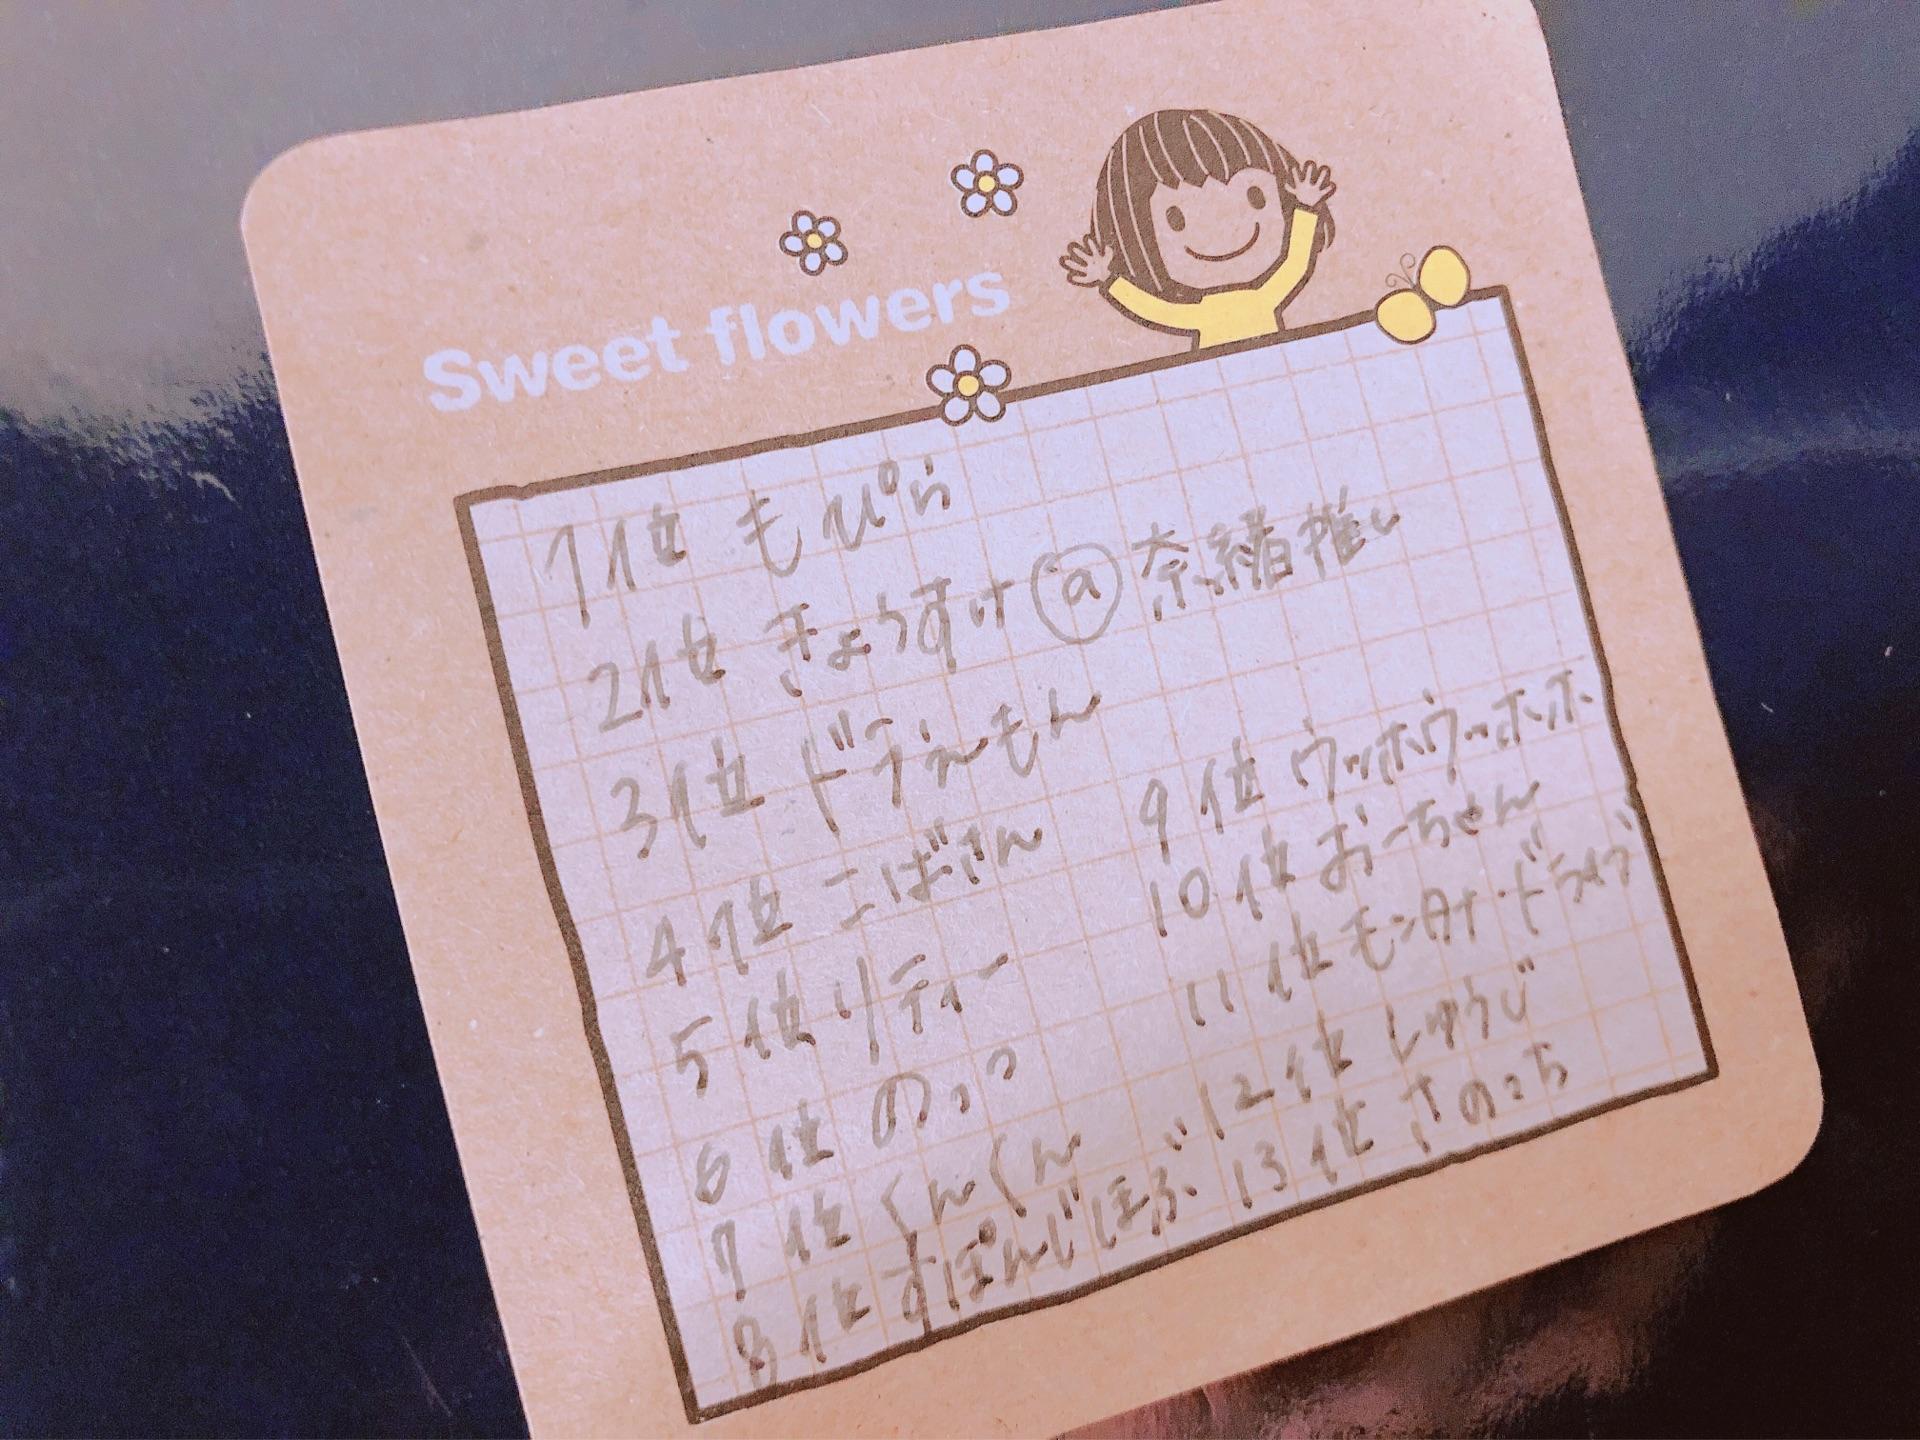 Sweet flowers
1位 もぴら
2位 きょうすけ@奈緒推し
3位 ドラえもん
4位 こばさん
5位 リティー
6位 のっつ
7位 くんくん
8位 すぽんじぼぶ
9位 ウッホウッホホ
10位 おーちゃん
11位 モンタナ・ドライブ
12位 しゅうじ
13位 さのっち